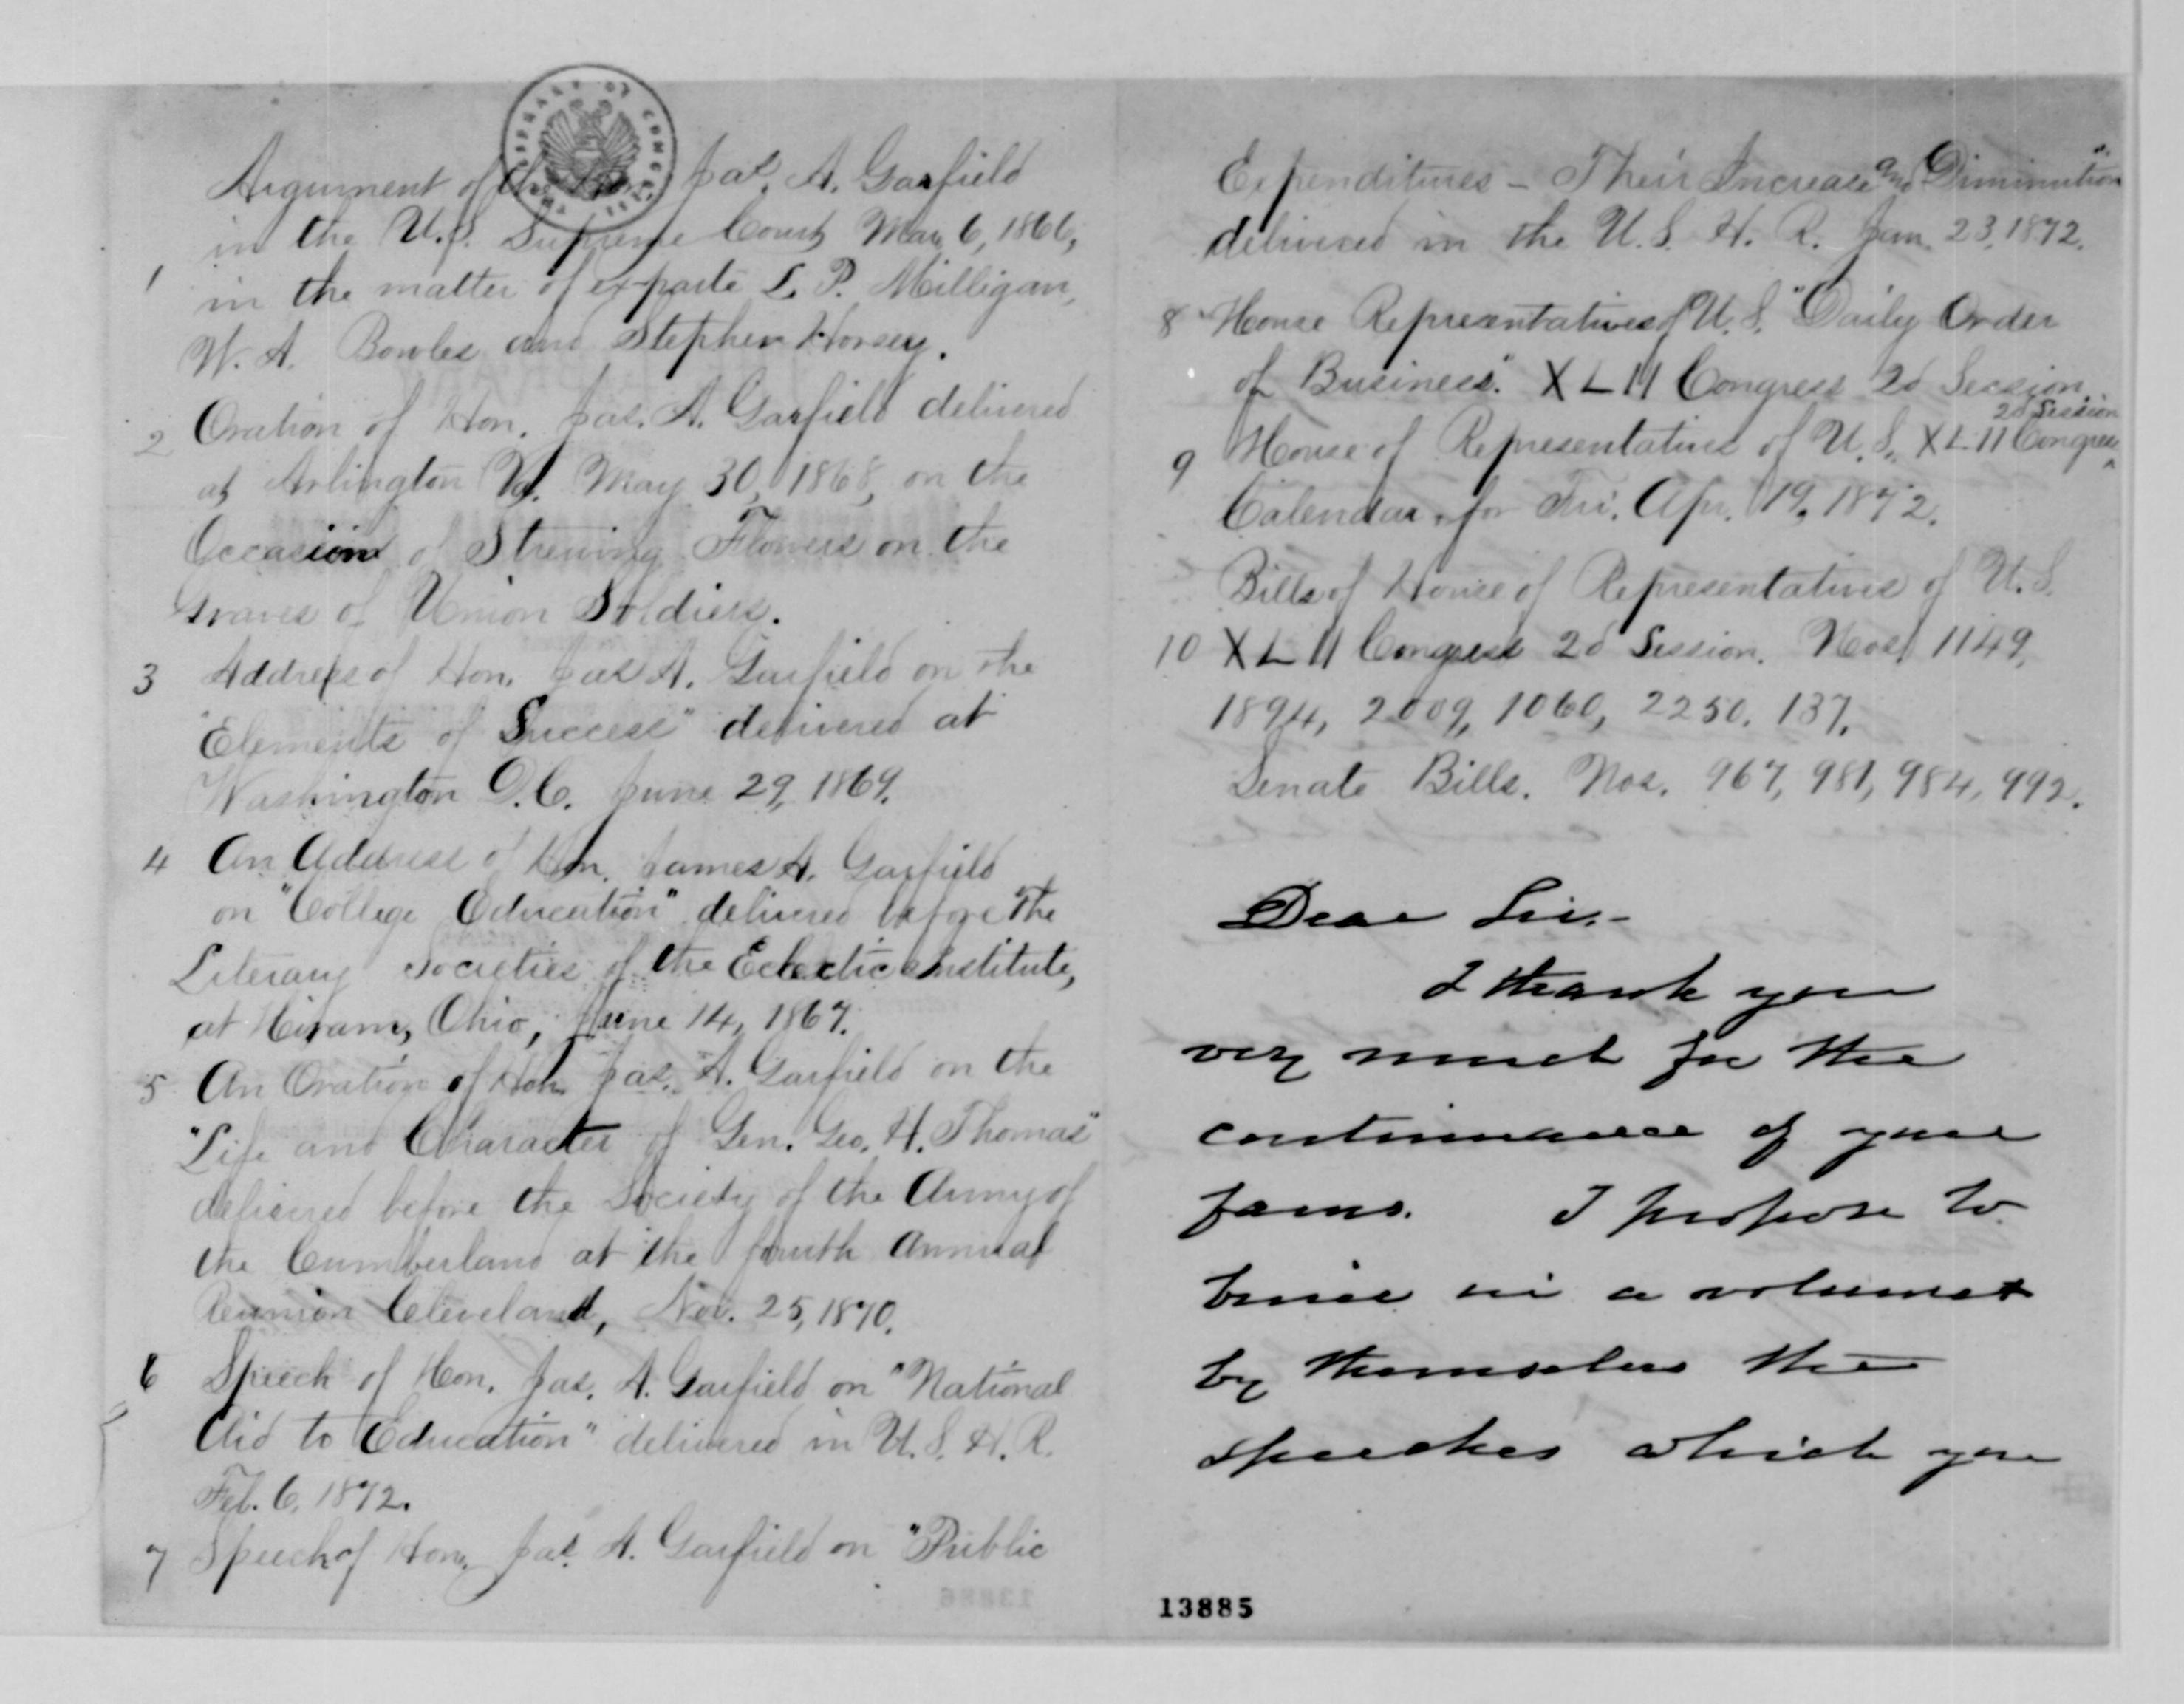 Argument of the Hon. Jas. A. Garfield
in the U.S. Supreme Court Mar. 6, 1866,
1 in the matter of exparte L. P. Milligan,
W. A. Bowles and Stephen Horsey.
2 Oration of Hon. Jas. A. Garfield delivered
at Arlington Va. May 30, 1868, on the
Occasion of Strewing Flowers on the
Graves of Union Soldiers.
3 Address of Hon. Jas A. Garfield on the
"Elements of Success" delivered at
Washington D.C. June 29, 1869.
4 An Address of Hon. James A. Garfield
on "College Education" delivered before the
Literary Societies of the Eclectic Institute,
at Hiram, Ohio, June 14, 1867.
5 An Oration of Hon. Jas. A. Garfield on the
"Life and Character of Gen. Geo. H. Thomas"
delivered before the Society of the Army of
the Cumberland at the fourth Annual
Reunion Cleveland, Nov. 25, 1870.
6 Speech of Hon. Jas. A. Garfield on "National
Aid to Education" delivered in U. S. H. R.
Feb. 6, 1872.
7 Speech of Hon. Jas. A. Garfield on "Public
Expenditures - Their Increase and Diminution"
delivered in the U. S. H. R. Jan. 23, 1872.
8 House Representatives of U. S. "Daily Order
of Business." XLII Congress 2d Session
2d Session
9 House of Representatives of U. S. XLII Congress
Calendar for Fri. Apr. 19, 1872.
Bills of House of Representatives of U. S.
10 XLII Congress 2d Session. Nos. 1149,
1894, 2009, 1060, 2250, 137.
Senate Bills. Nos. 967, 981, 984, 992.
Dear Sir.-
I thank you
very much for the
continuance of your
favors. I propose to
bind in a volume
by themselves the
speeches which you
13885